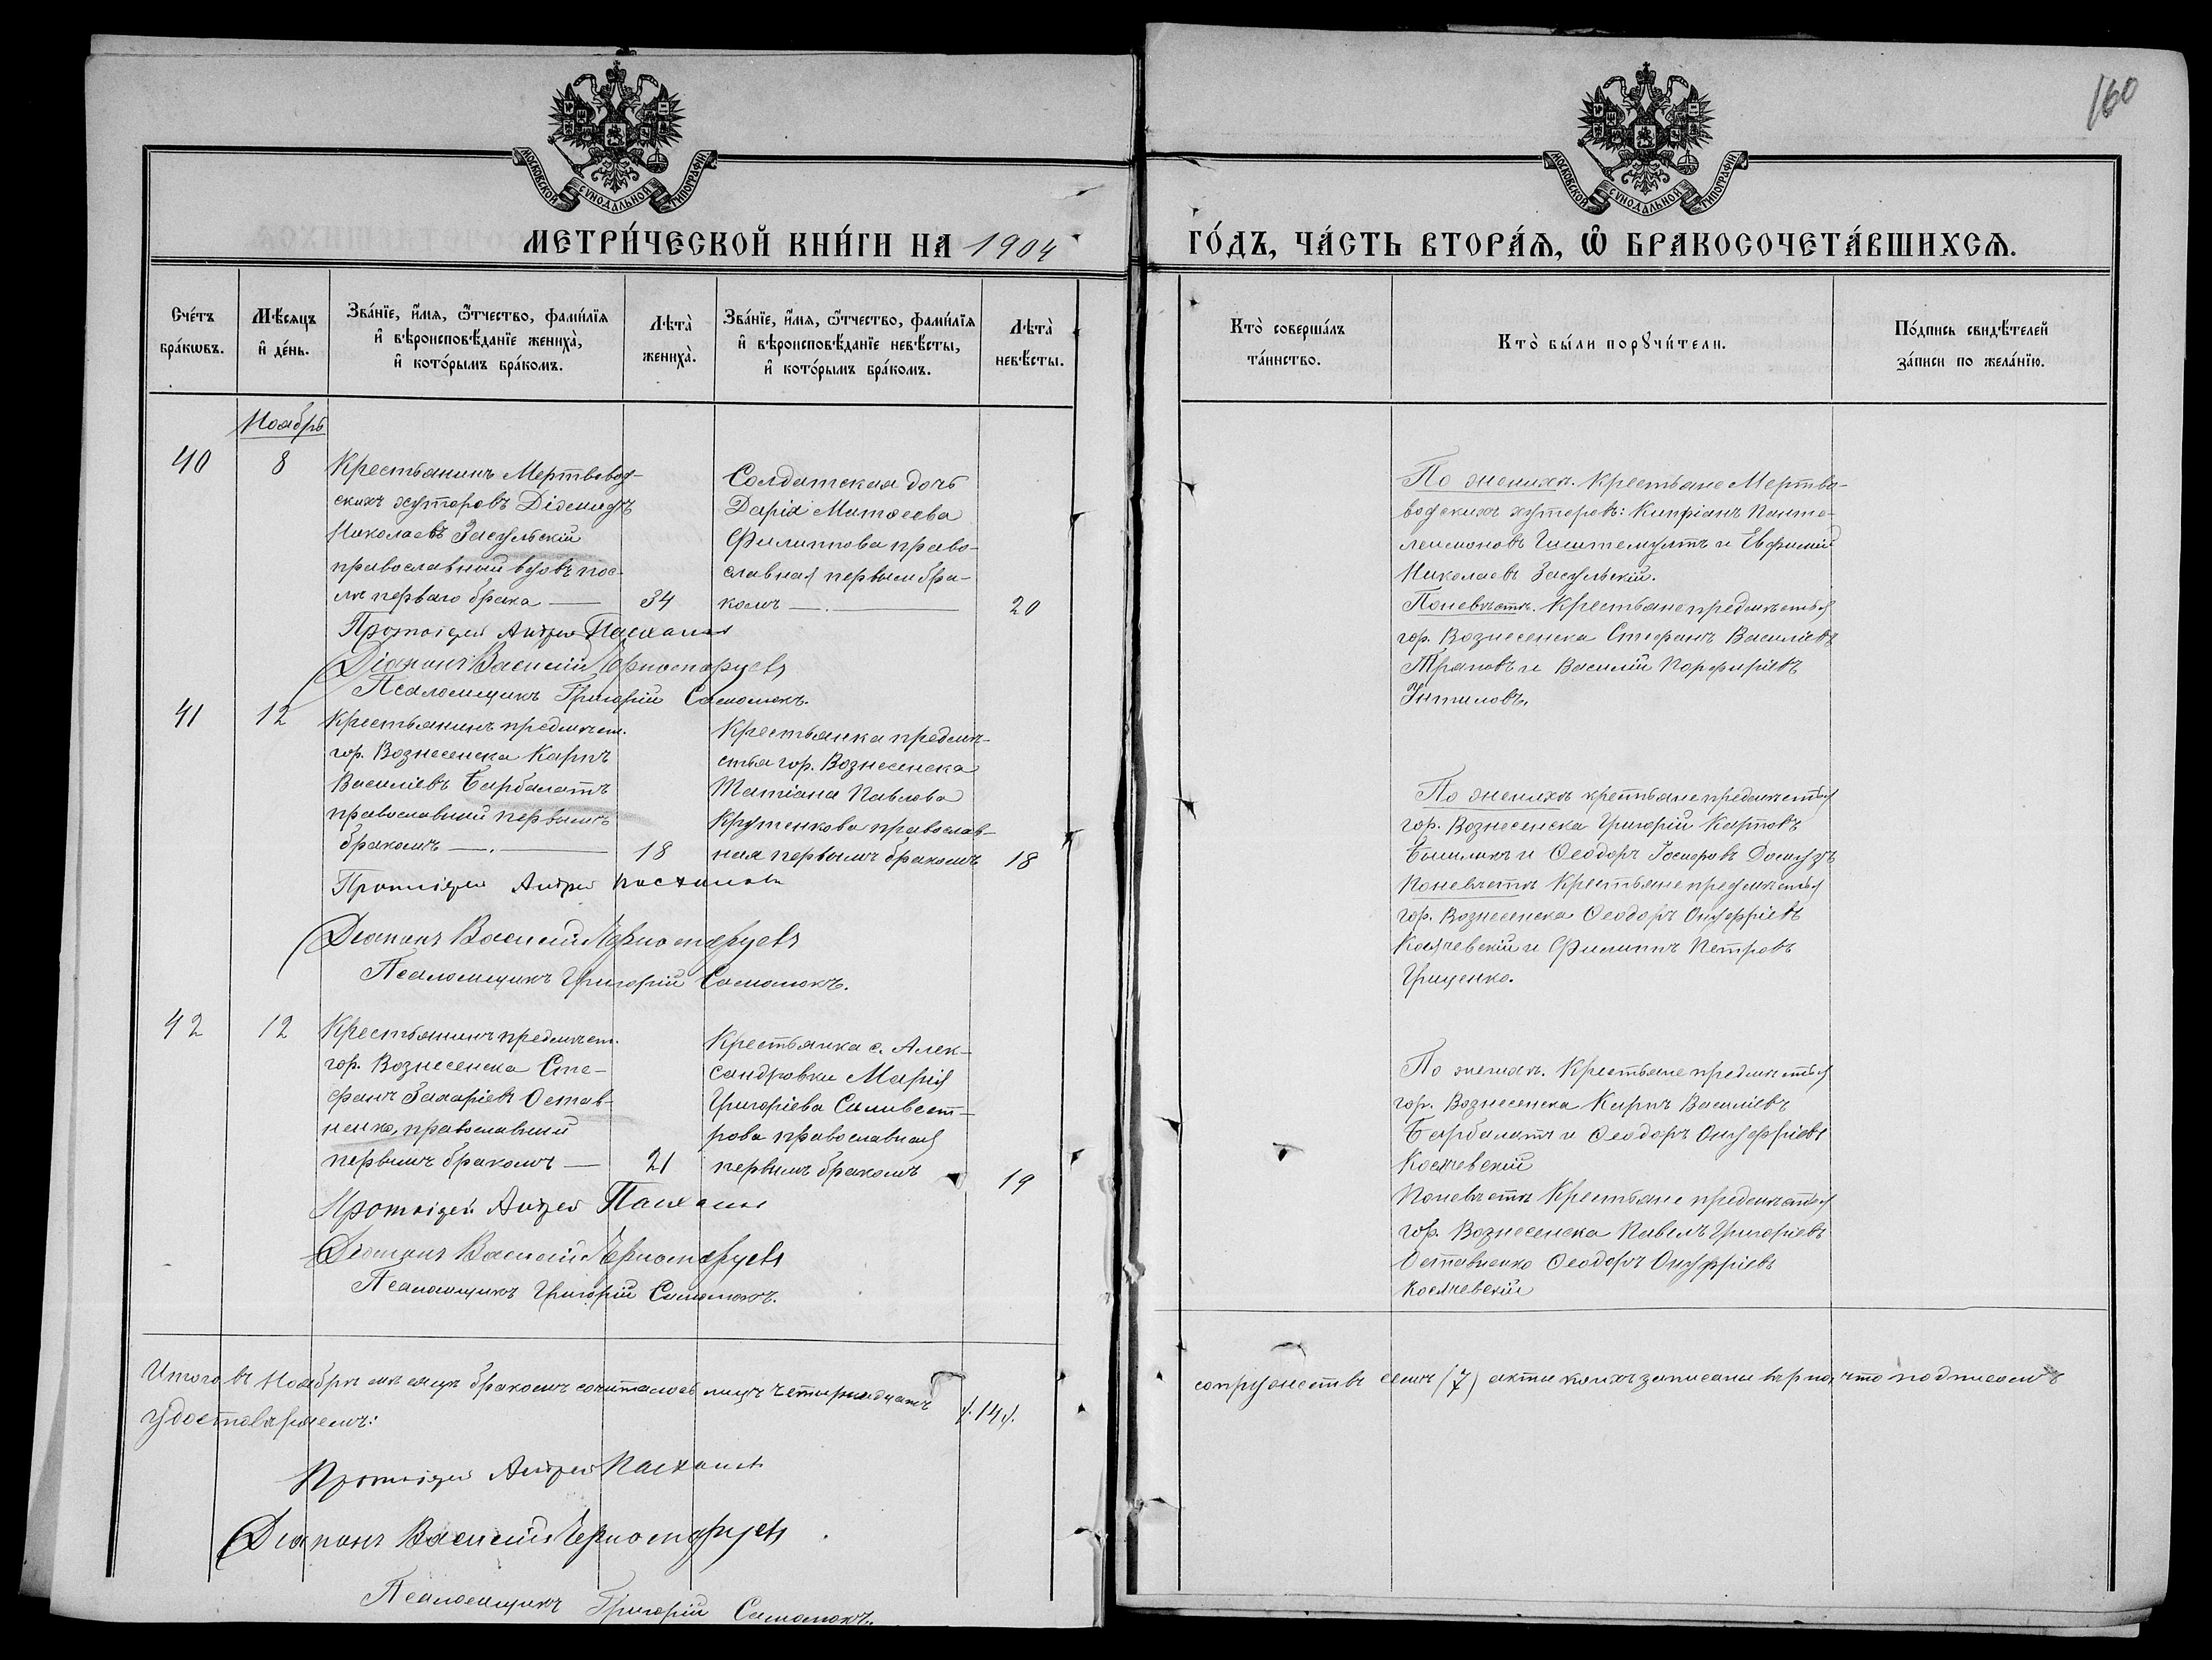 160
МОСКОВСКОЙ СѴНОДАЛЬНОЙ ТИПОГРАФІИ
МОСКОВСКОЙ СѴНОДАЛЬНОЙ ТИПОГРАФІИ
МЕТРИ́ЧЕСКОЙ КНИ́ГИ НА 1904
ГО́ДЪ, ЧА́СТЬ ВТОРА́Ѧ, Ѽ БРАКОСОЧЕТА́ВШИХСѦ.
Сче́тъ
бра́кωвъ.
Мѣ́сяцъ
и҆ де́нь.
Зва́нїе, и҆́мя, ѻ҆́тчество, фами́лїя
и҆ вѣроисповѣ́данїе жениха̀,
и҆ кото́рымъ бра́комъ.
Лѣта̀
жениха̀.
Зва́нїе, и҆́мя, ѻ҆́тчество, фами́лїя
и҆ вѣроисповѣ́данїе невѣ́сты,
и҆ кото́рымъ бра́комъ.
Лѣта̀
невѣ́сты.
Кто̀ соверша́лъ
та́инство.
Кто̀ бы́ли порꙋчи́тели.
По́дпись свидѣ́телей
за́писи по жела́нїю.
Ноябрь
40
8
Крестьянинъ Мертвовод-
скихъ хуторовъ Діомидъ
Николаевъ Засульскій
православный вдовъ пос-
лѣ перваго брака —
34
Солдатская дочь
Дарія Матѳеева
Филиппова право-
славная первымъ бра-
комъ —
20
Протоіерей Андрей
Діаконъ Василій
Псаломщикъ Григорій
По женихѣ. Крестьяне Мертво-
водскихъ хуторовъ: Кипріанъ Панте-
леимоновъ и Евфимій
Николаевъ Засульскій.
По невѣстѣ. Крестьяне предмѣстья
гор. Вознесенска Стефанъ Василіевъ
и Василій Порфиріевъ
41
12
Крестьянинъ предмѣст.
гор. Вознесенска Карпъ
Василіевъ Барбалатъ
православный первымъ
бракомъ —
18
Крестьянка предмѣ-
стья гор. Вознесенска
Татіана Павлова
Крутенкова православ-
ная первымъ бракомъ
18
Протоіерей Андрей
Діаконъ Василій
Псаломщикъ Григорій
По женихѣ крестьяне предмѣстья
гор. Вознесенска Григорій Карповъ
и Ѳеодоръ
По невѣстѣ Крестьяне предмѣстья
гор. Вознесенска Ѳеодоръ Онуфріевъ
и Филиппъ Петровъ
Гриценко.
42
12
Крестьянинъ предмѣст.
гор. Вознесенска Сте-
фанъ Захаріевъ Остав-
ненко, православный
первымъ бракомъ —
21
Крестьянка с. Алек-
сандровки Марія
Григоріева Силивест-
рова православная
первымъ бракомъ
19
Протоіерей Андрей
Діаконъ Василій
Псаломщикъ Григорій
По женихѣ. Крестьяне предмѣстья
гор. Вознесенска Карпъ Василіевъ
Барбалатъ и Ѳеодоръ Онуфріевъ
По невѣстѣ Крестьяне предмѣстья
гор. Вознесенска Павелъ Григоріевъ
Оставненко Ѳеодоръ Онуфріевъ
Итого въ Ноябрѣ мѣсяцѣ бракомъ сочеталось лицъ четырнадцать /.14./.
супружествъ семь (7) акты коихъ записаны вѣрно, что подписомъ
удостовѣряемъ:
Протоіерей Андрей
Діаконъ Василій
Псаломщикъ Григорій